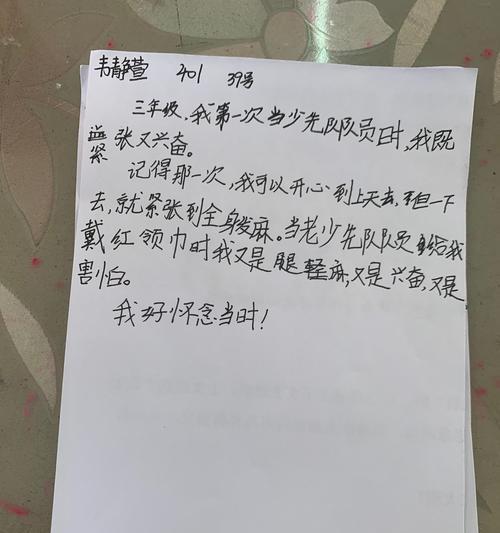 韦静萱 401 39号
三年级,我第一次当少先队队员时,我既
紧张又兴奋。
记得那一次,我可以开心到上天去,但一下
去,就紧张到全身发麻。当老少先队队员给我
戴红领巾时我又是腿轻麻,又是兴奋,又是
害怕。
我好怀念当时!